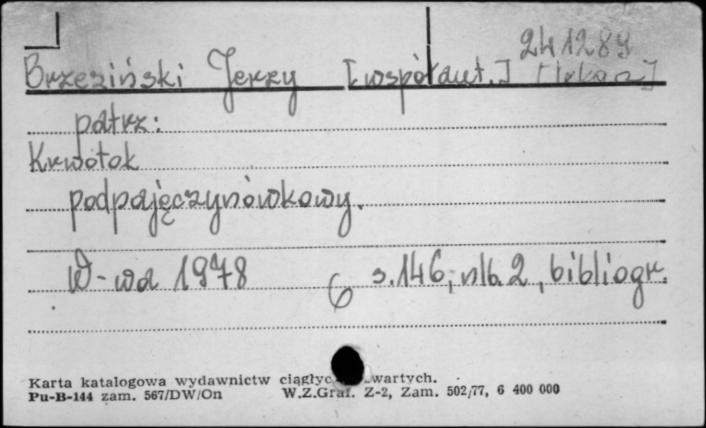 241289
Brzeziński Jerzy [współaut.] [lekarz]
patrz:
Krwotok
podpajęczynówkowy.
W-wa 1978 6 s.146, nlb. 2, bibliogr.
Karta katalogowa wydawnictw
Pu-B-144 zam. 567/DW/On W.Z.Graf. Z-2, Zam. 502/77, 6 400 000